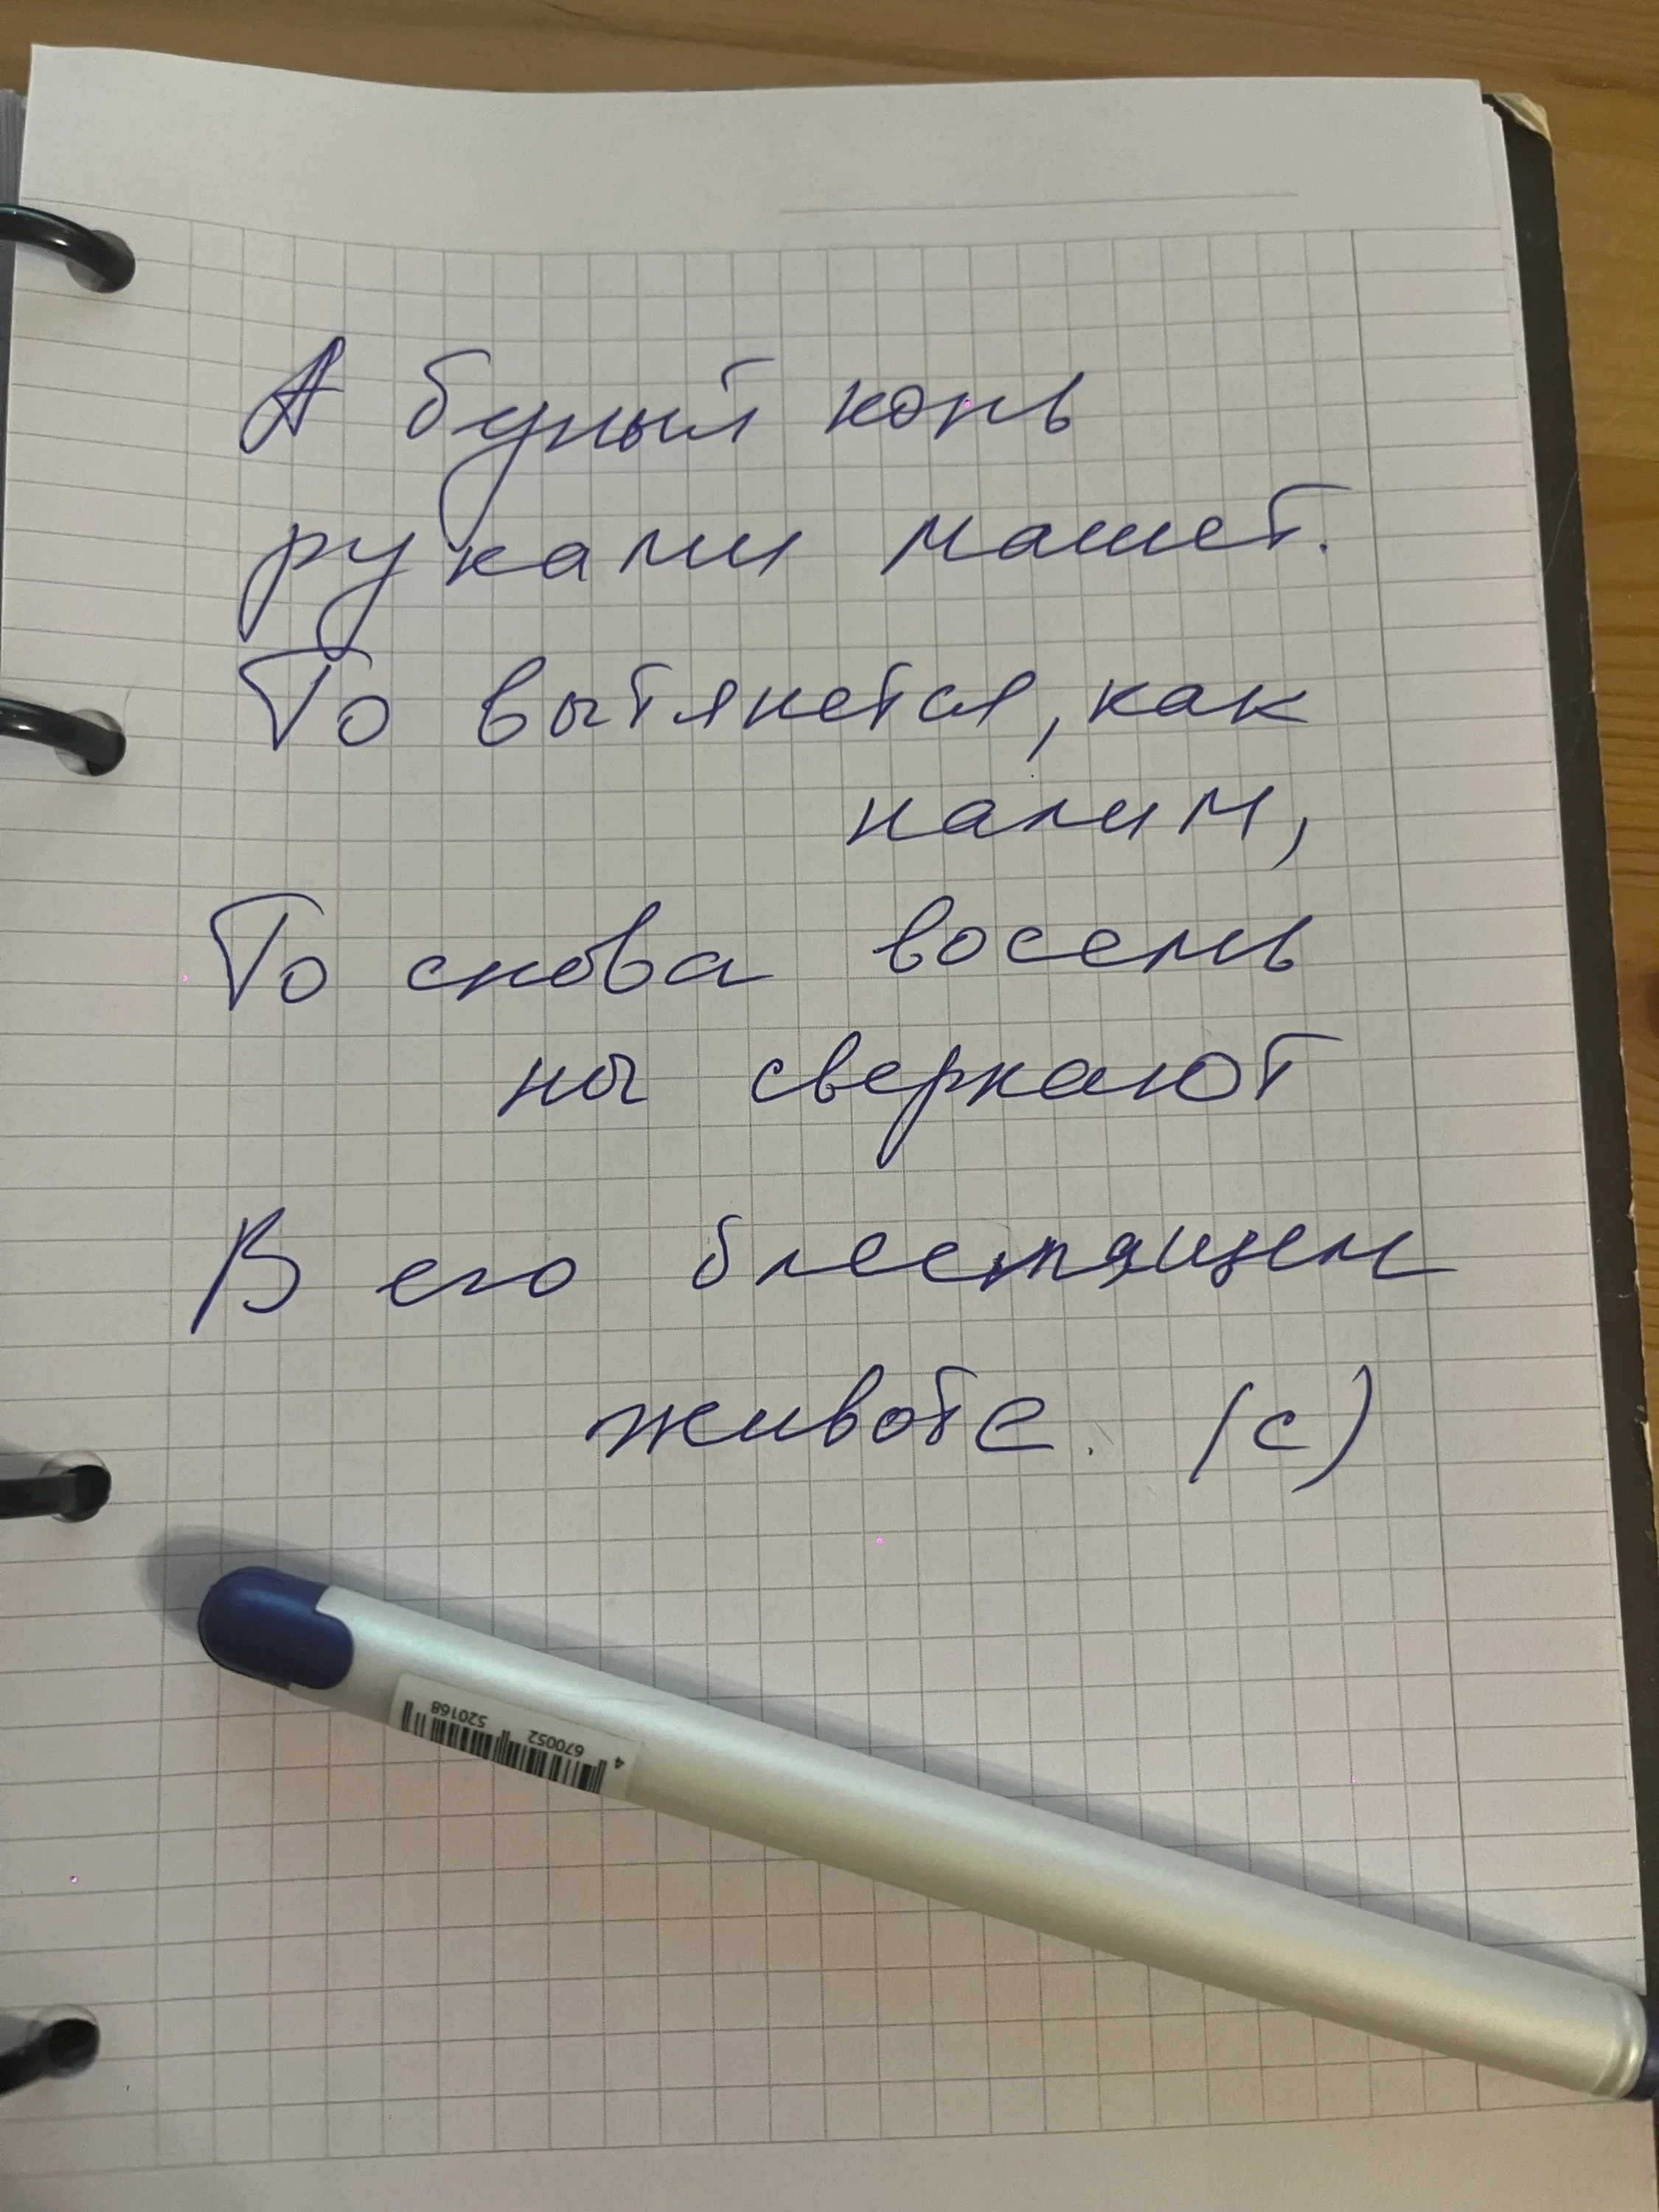 А бедный конь
руками машет.
То вытянется, как
налим,
То снова восемь
ног сверкают
В его блестящем
животе. (с)
4 670052 520168